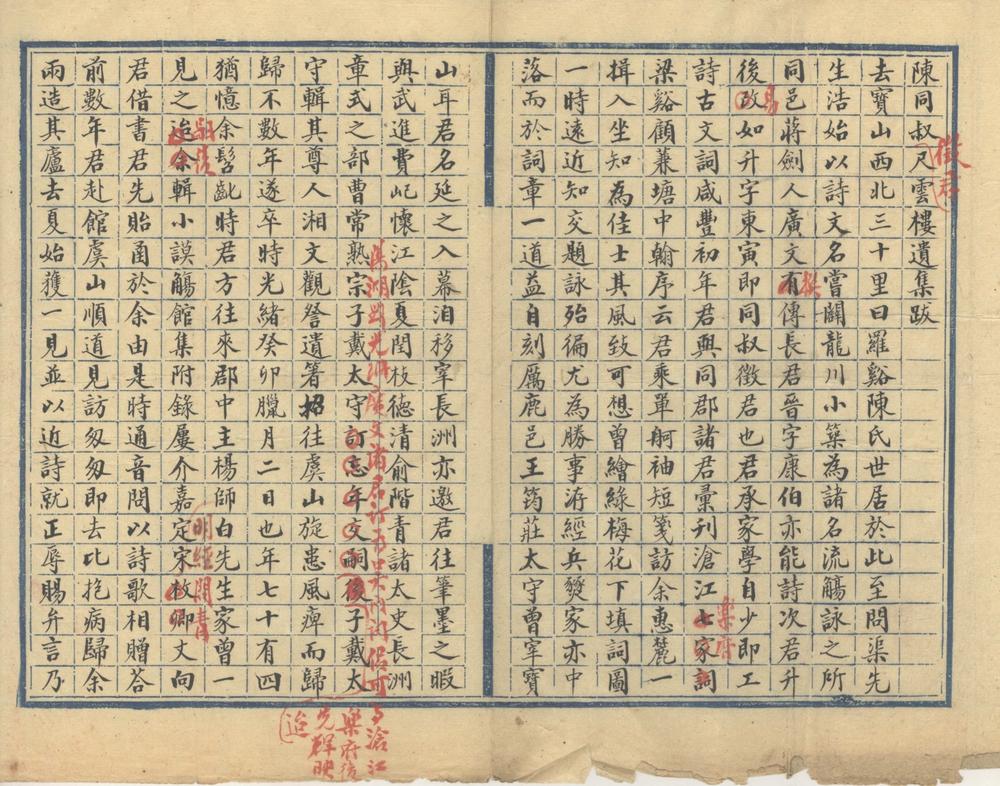 陳同叔尺雲樓遺集跋
去寶山西北三十里曰羅谿陳氏世居於此至問渠先
生浩始以詩文名嘗闢龍川小築為諸名流觴詠之所
同邑蔣劍人廣文有傳長君晉字康伯亦能詩次君升
後改如升字東寅即同叔徵君也君承家學自少即工
詩古文詞咸豐初年君與同郡諸君彙刊滄江七家詞
梁谿顧蒹塘中翰序云君乘單舸袖短箋訪余惠麓一
揖入坐知為佳士其風致可想曾繪綠梅花下填詞圖
一時遠近知交題詠殆徧尤為勝事洊經兵燹家亦中
落而於詞章一道益自刻厲鹿邑王筠莊太守曾宰寶
山耳君名延之入幕洎移宰長洲亦邀君往筆墨之暇
與武進費屺懷江陰夏閏枝德清俞階青諸太史長洲
章式之部曹常熟宗子戴太守訂忘年交嗣後子戴太
守輯其尊人湘文觀詧遺箸招往虞山旋患風痺而歸
歸不數年遂卒時光緒癸卯臘月二日也年七十有四
猶憶余髫齔時君方往來郡中主楊師白先生家曾一
見之迨余輯小謨觴館集附錄屢介嘉定宋枚卿丈向
君借書君先貽函於余由是時通音問以詩歌相贈答
前數年君赴館虞山順道見訪匆匆即去比抱病歸余
雨造其廬去夏始獲一見並以近詩就正辱賜弁言乃
徵君
易
撰
樂府
嗣後
明經
與滄江
樂府後
先輝映
迨